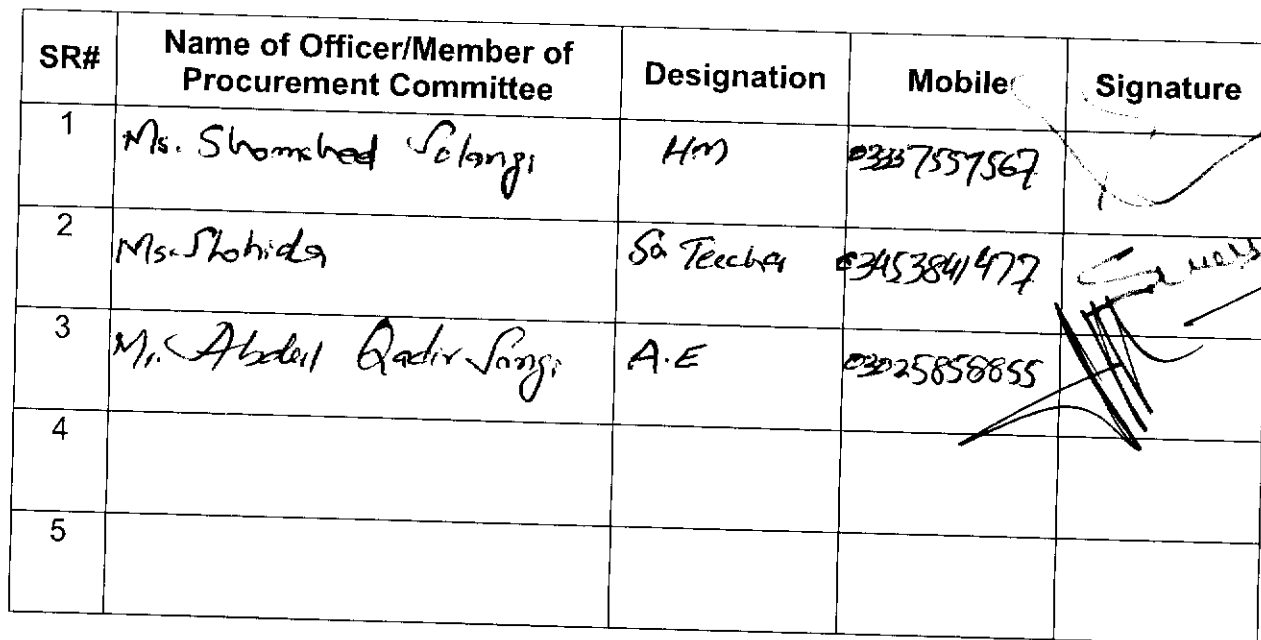 SR# Name of Officer/Member of Procurement Committee Designation Mobile Signature
1 Ms. Shomshad Solangi HM 03337557567
2 Ms. Shohida Sa Teacher 03453841477
3 Mr. Abdul Qadir Sangi A.E 03025858855
4
5